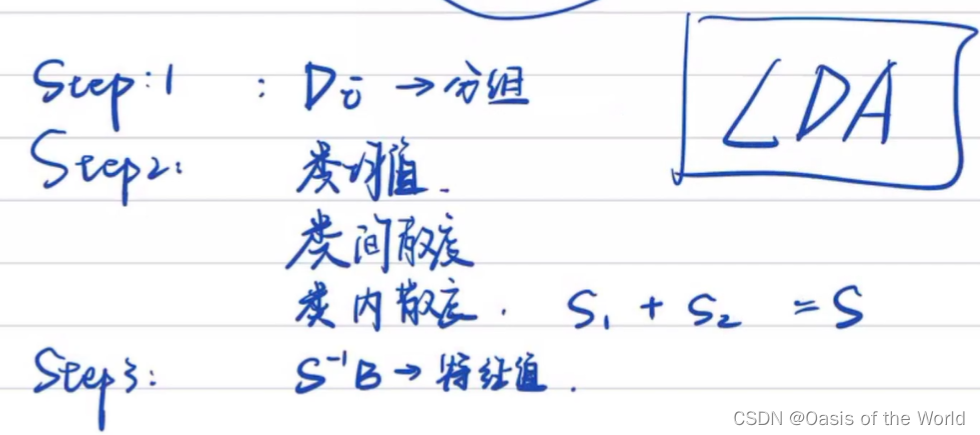 Step:1 : Di → 分组
LDA
Step2: 类均值.
类间散度
类内散度. S₁ + S₂ = S
Step3: S⁻¹B → 特征值.
CSDN @Oasis of the World